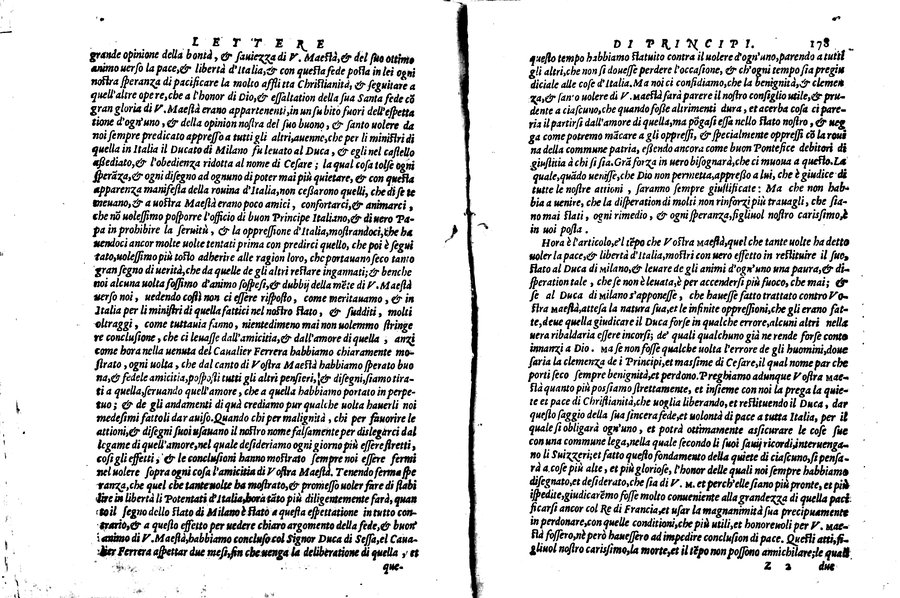 LETTERE
grande opinione della bontà, & sauiezza di V. Maestà, & del suo ottimo
animo uerso la pace, & libertà d'Italia, & con questa fede posta in lei ogni
nostra speranza di pacificare la molto afflitta Christianità, & seguitare a
quell'altre opere, che a l'honor di Dio, & essaltation della sua Santa fede cō
gran gloria di V. Maestà erano appartenenti, in un subito fuori dell'espetta
tione d'ogn'uno, & della opinion nostra del suo buono, & santo uolere da
noi sempre predicato appresso a tutti gli altri, auenne, che per li ministri di
quella in Italia il Ducato di Milano fu leuato al Duca, & egli nel castello
assediato, & l'obedienza ridotta al nome di Cesare; la qual cosa tolse ogni
sperāza, & ogni disegno ad ognuno di poter mai più quietare, & con questa
apparenza manifesta della rouina d'Italia, non cessarono quelli, che di se te
meuano, & a nostra Maestà erano poco amici, confortarci, & animarci,
che nō uolessimo posporre l'officio di buon Principe Italiano, & di uero Pa-
pa in prohibire la seruitù, & la oppressione d'Italia, mostrandoci, che ha
uendoci ancor molte uolte tentati prima con predirci quello, che poi è segui
tato, uolessimo più tosto adherire alle ragion loro, che portauano seco tanto
gran segno di uerità, che da quelle de gli altri restare ingannati; & benche
noi alcuna uolta fossimo d'animo sospesi, & dubbij della mēte di V. Maestà
uerso noi, uedendo così non ci essere risposto, come meritauamo, & in
Italia per li ministri di quella fattici nel nostro stato, & sudditi, molti
oltraggi, come tuttauia fanno, nientedimeno mai non uolemmo stringe
re conclusione, che ci leuasse dall'amicitia, & dall'amore di quella, anzi
come hora nella uenuta del Caualier Ferrera habbiamo chiaramente mo-
strato, ogni uolta, che dal canto di Vostra Maestà habbiamo sperato buo
na, & fedele amicitia, posposti tutti gli altri pensieri, & disegni, siamo tira-
ti a quella, seruando quell'amore, che a quella habbiamo portato in perpe-
tuo; & de gli andamenti di quà crediamo pur qualche uolta hauerli noi
medesimi fattoli dar auiso. Quando chi per malignità, chi per fauorire le
attioni, & disegni suoi usauano il nostro nome falsamente per dislegarci dal
legame di quell'amore, nel quale desideriamo ogni giorno più essere stretti,
così gli effetti, & le conclusioni hanno mostrato sempre noi essere fermi
nel uolere sopra ogni cosa l'amicitia di Vostra Maestà. Tenendo ferma spe
ranza, che quel che tante uolte ha mostrato, & promesso uoler fare di stabi
lire in libertà li Potentati d'Italia, hora tāto più diligentemente farà, quan
to il segno dello stato di Milano è stato a questa espettatione in tutto con-
trario, & a questo effetto per uedere chiaro argomento della fede, & buon
animo di V. Maestà, habbiamo concluso col Signor Duca di Sessa, el Caua-
lier Ferrera aspettar due mesi, fin che uenga la deliberatione di quella, et
que-
DI PRINCIPI. 178
questo tempo habbiamo statuito contra il uolere d'ogn'uno, parendo a tutti
gli altri, che non si douesse perdere l'occasione, & ch'ogni tempo sia pregiu
diciale alle cose d'Italia. Ma noi ci confidiamo, che la benignità, & clemen
za, & sano uolere di V. Maestà farà parere il nostro consiglio utile, & pru-
dente a ciascuno, che quando fosse altrimenti dura, et acerba cosa ci pare-
ria il partirsi dall'amore di quella, ma pōgasi essa nello stato nostro, & ueg
ga come potremo mācare a gli oppressi, & specialmente oppressi cō la roui
na della commune patria, essendo ancora come buon Pontefice debitori di
giustitia à chi si sia. Grā forza in uero bisognarà, che ci muoua a questo. La
quale, quādo uenisse, che Dio non permetta, appresso a lui, che è giudice di
tutte le nostre attioni, saranno sempre giustificate: Ma che non hab-
bia a uenire, che la disperation di molti non rinforzi più trauagli, che sia-
no mai stati, ogni rimedio, & ogni speranza, figliuol nostro carissimo, è
in uoi posta.
Hora è l'articolo, e'l tēpo che Vostra Maestà, quel che tante uolte ha detto
uoler la pace, & libertà d'Italia, mostri con uero effetto in restituire il suo
stato al Duca di Milano, & leuare de gli animi d'ogn'uno una paura, & di-
speration tale, che se non è leuata, è per accendersi più fuoco, che mai; &
se al Duca di Milano s'apponesse, che hauesse fatto trattato contro Vo-
stra Maestà, attesa la natura sua, et le infinite oppressioni, che gli erano fat-
te, deue quella giudicare il Duca forse in qualche errore, alcuni altri nella
uera ribaldaria essere incorsi; de' quali qualchuno già ne rende forse conto
innanzi a Dio. Ma se non fosse qualche uolta l'errore de gli huomini, doue
saria la clemenza de i Principi, et massime di Cesare, il qual nome par che
porti seco sempre benignità, et perdono. Preghiamo adunque Vostra Mae-
stà quanto più possiamo strettamente, et insieme con noi la prega la quie-
te et pace di Christianità, che uoglia liberando, et restituendo il Duca, dar
questo saggio della sua sincera fede, et uolontà di pace a tutta Italia, per il
quale si obligarà ogn'uno, et potrà ottimamente assicurare le cose sue
con una commune lega, nella quale secondo li suoi sauij ricordi, interuenga-
no li Suizzeri; et fatto questo fondamento della quiete di ciascuno, si pensa-
rà a cose più alte, et più gloriose, l'honor delle quali noi sempre habbiamo
disegnato, et desiderato, che sia di V. M. et perch'elle siano più pronte, et più
ispedite, giudicarēmo fosse molto conueniente alla grandezza di quella paci
ficarsi ancor col Re di Francia, et usar la magnanimità sua precipuamente
in perdonare, con quelle conditioni, che più utili, et honoreuoli per V. Mae-
stà fossero, nè però hauessero ad impedire conclusion di pace. Questi atti, fi-
gliuol nostro carissimo, la morte, et il tēpo non possono annichilare; le quali
Z 2 due